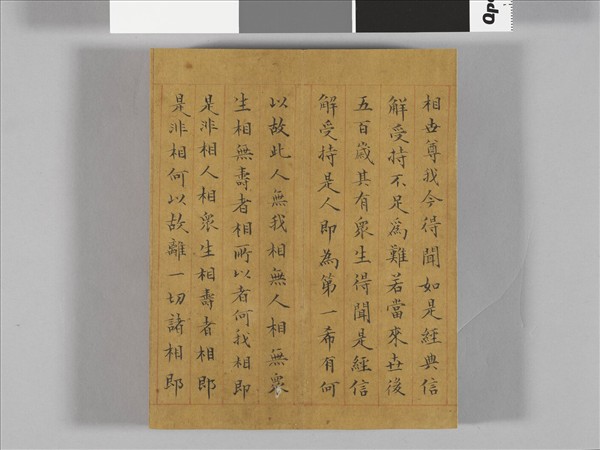 相世尊我今得聞如是經典信
解受持不足為難若當來世後
五百歲其有眾生得聞是經信
解受持是人即為第一希有何
以故此人無我相無人相無眾
生相無壽者相所以者何我相即
是非相人相眾生相壽者相即
是非相何以故離一切諸相即